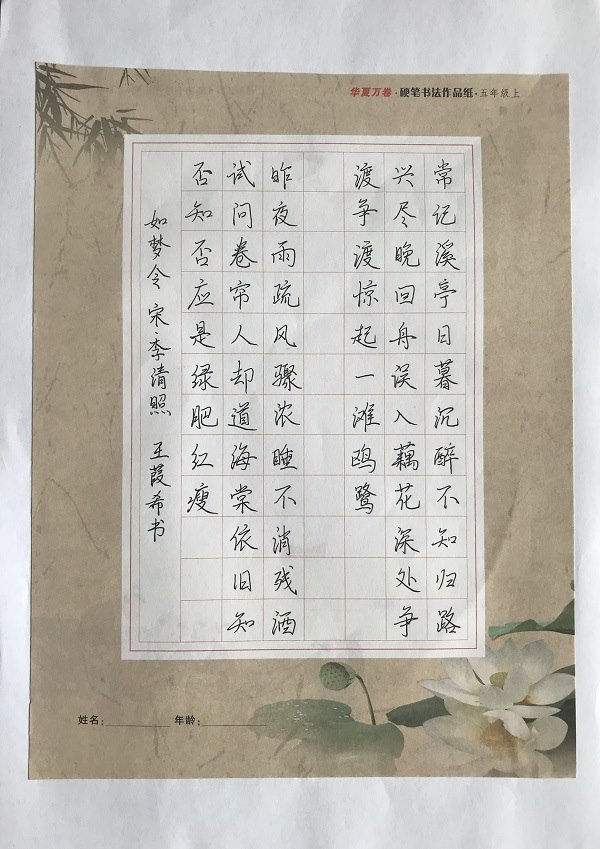 华夏万卷·硬笔书法作品纸·五年级上
常记溪亭日暮沉醉不知归路
兴尽晚回舟误入藕花深处争
渡争渡惊起一滩鸥鹭
昨夜雨疏风骤浓睡不消残酒
试问卷帘人却道海棠依旧知
否知否应是绿肥红瘦
如梦令 宋·李清照 王葭希书
姓名： 年龄：